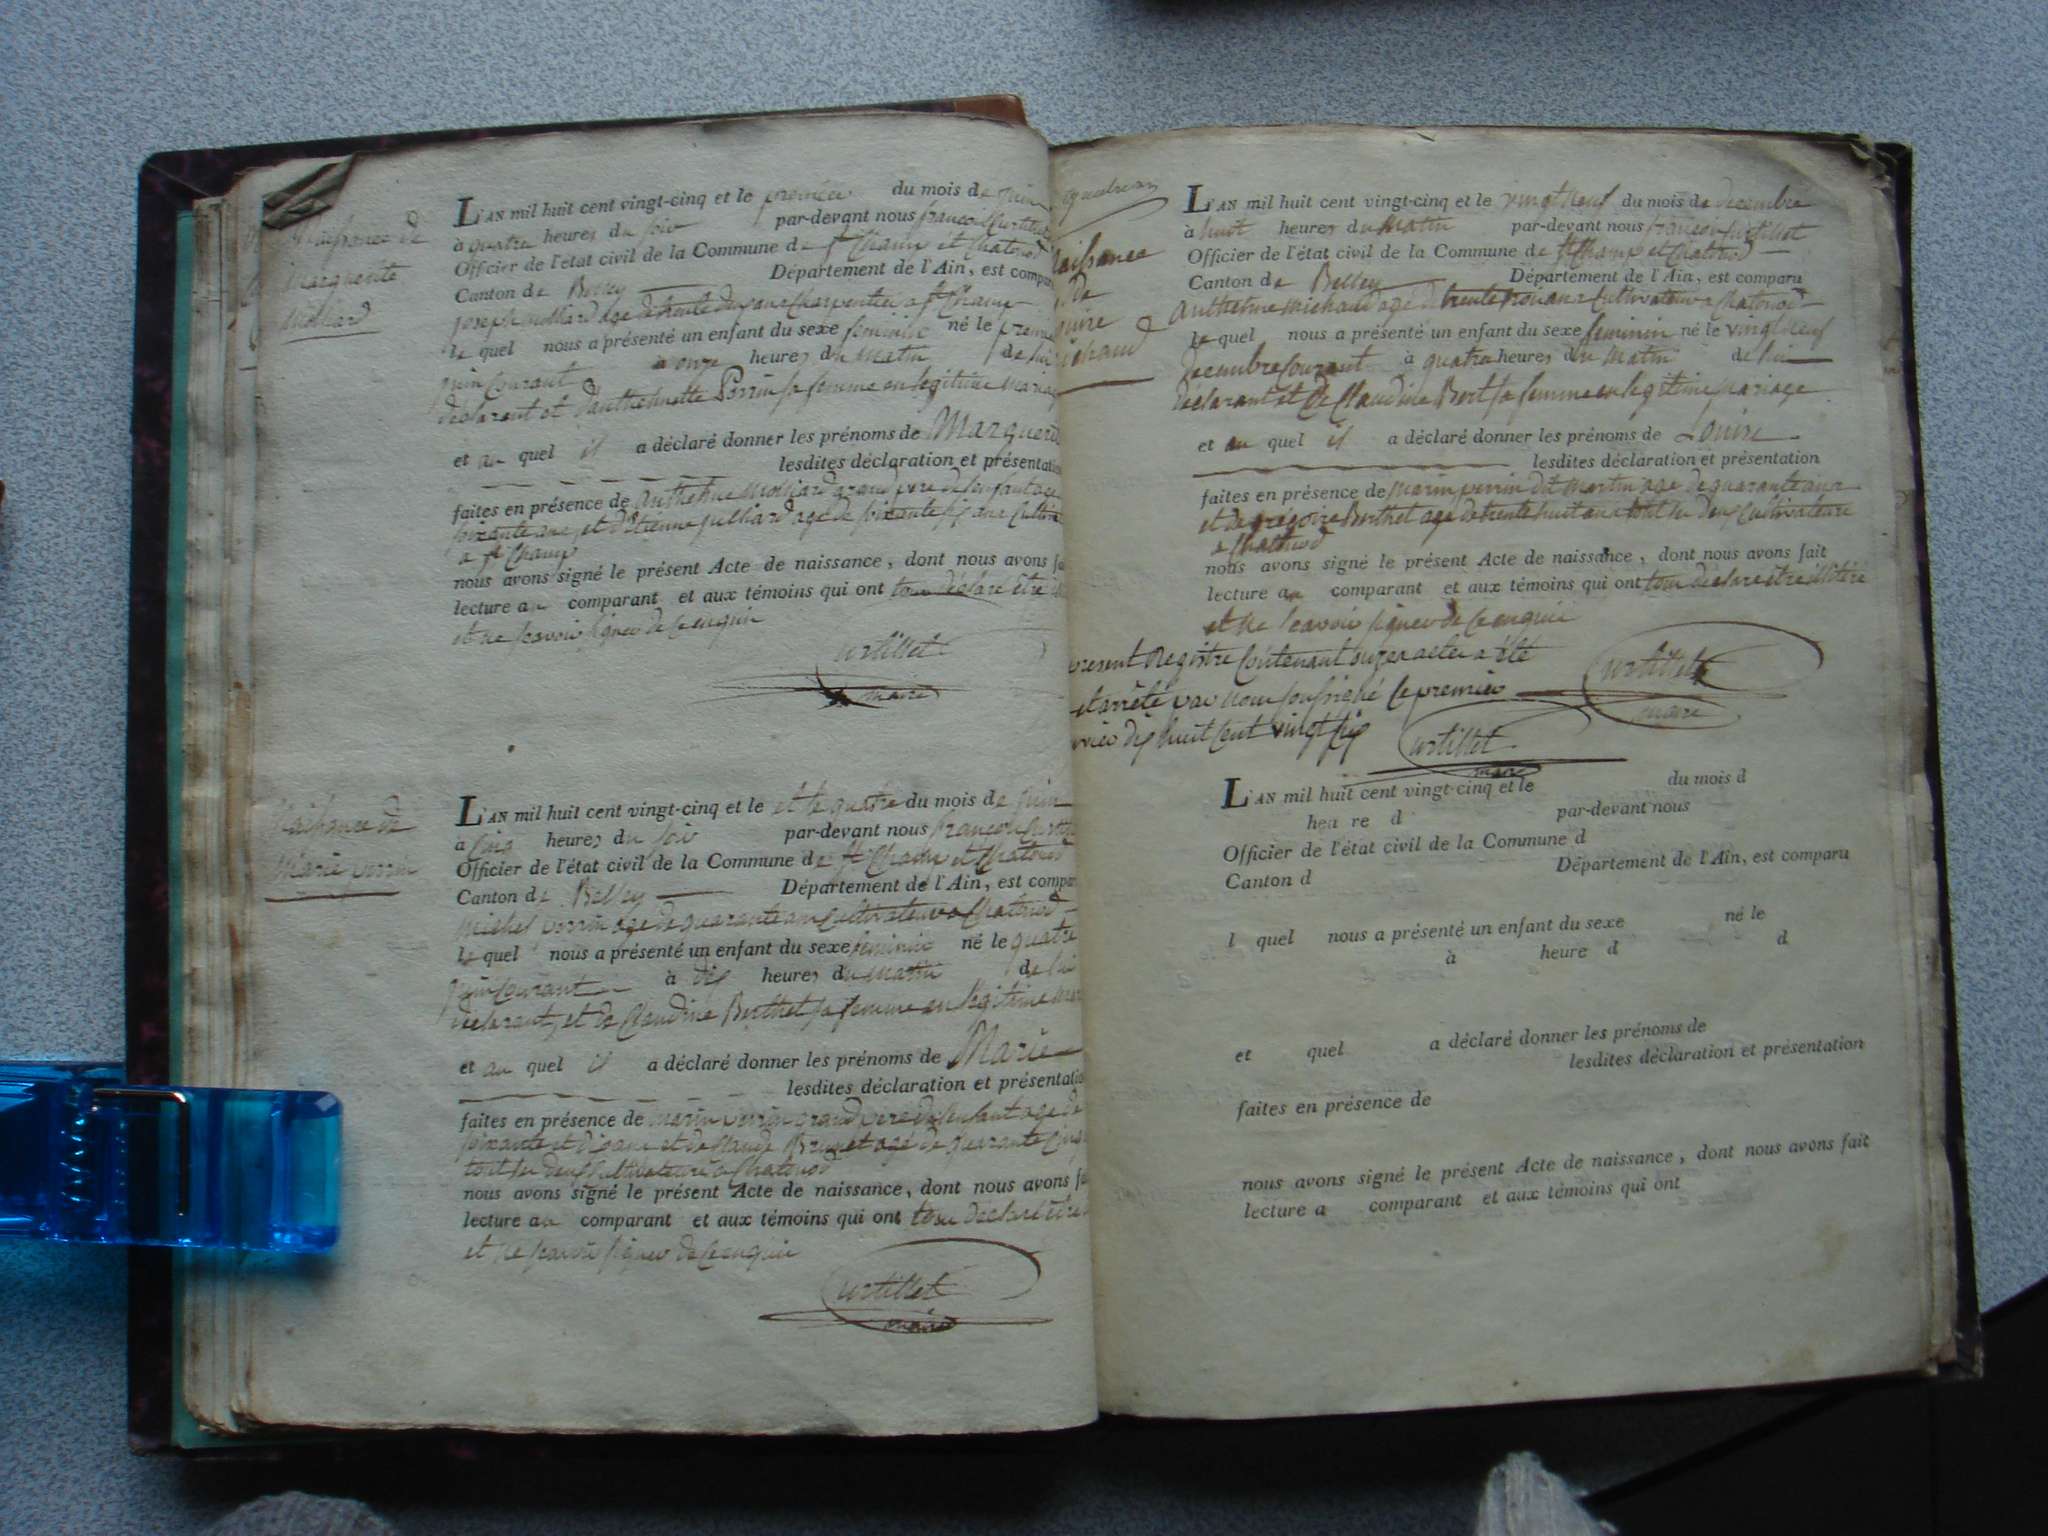 Naissance de
Marguerite
Molliard
L'AN mil huit cent vingt-cinq et le premier du mois de juin
à quatre heures du soir par-devant nous françois Curtillet
Officier de l'état civil de la Commune de St Champ et Chatonod
Canton de Belley Département de l'Ain, est compar
joseph molliard age de trente deux ans Charpentier a St Champ
le quel nous a présenté un enfant du sexe feminin né le premier
juin Courant à onze heures du matin de lui
déclarant et d'anthelmette Perrin sa femme en legitime mariage
et au quel il a déclaré donner les prénoms de Marguerite
lesdites déclaration et présentation
faites en présence de anthelme Molliard grand pere de lenfant age
soixante ans, et d'Etienne juilliard age de soixante six ans Cultiva
a St Champ
nous avons signé le présent Acte de naissance, dont nous avons fa
lecture au comparant et aux témoins qui ont tous déclaré Etre
et ne scavoir signer de ce enquis
Curtillet
maire
Naissance de
Marie perrin
L'AN mil huit cent vingt-cinq et le et le quatre du mois de juin
à Cinq heures du soir par-devant nous françois Curtillet
Officier de l'état civil de la Commune de St Champ et Chatonod
Canton de Belley Département de l'Ain, est compar
michel perrin age de quarante ans Cultivateur a Chatonod
le quel nous a présenté un enfant du sexe feminin né le quatre
juin Courant à dix heures du matin de lui
déclarant, et de Claudine Berthet sa femme en légitime mar
et au quel il a déclaré donner les prénoms de Marie
lesdites déclaration et présentatio
faites en présence de marin perrin grand pere de lenfant age de
soixante et dix ans et de Claude Brunet agé de quarante Cinq
tout les deux Cultivateurs a Chatonod
nous avons signé le présent Acte de naissance, dont nous avons fa
lecture au comparant et aux témoins qui ont tous declaré être
et ne scavoir signer de ce enquis
Curtillet
maire
aissance
de
ouise
ichaud
L'AN mil huit cent vingt-cinq et le vingt neuf du mois de decembre
à huit heures du matin par-devant nous françois Curtillet
Officier de l'état civil de la Commune de St Champ et Chatonod
Canton de Belley Département de l'Ain, est comparu
anthelme michaud agé de trente trois ans Cultivateur a Chatonod
le quel nous a présenté un enfant du sexe feminin né le vingt neuf
decembre Courant à quatre heures du matin de lui
déclarant et de Claudine Bert sa femme en legitime mariage
et au quel il a déclaré donner les prénoms de Louise
lesdites déclaration et présentation
faites en présence de marin perrin dit martin age de quarante ans
et de grégoire Berthet age de trente huit ans tout les deux Cultivateurs
a Chatonod
nous avons signé le présent Acte de naissance, dont nous avons fait
lecture au comparant et aux témoins qui ont tous déclaré être illitéré
et ne scavoir signer de ce enquis
Curtillet
maire
present Registre Contenant onze actes a été
et arrêté par nous soussigné le premier
nvier dix huit Cent vingt six
Curtillet
maire
L'AN mil huit cent vingt-cinq et le du mois d
heure d par-devant nous
Officier de l'état civil de la Commune d
Canton d Département de l'Ain, est comparu
l quel nous a présenté un enfant du sexe né le
à heure d d
et quel a déclaré donner les prénoms de
lesdites déclaration et présentation
faites en présence de
nous avons signé le présent Acte de naissance, dont nous avons fait
lecture a comparant et aux témoins qui ont